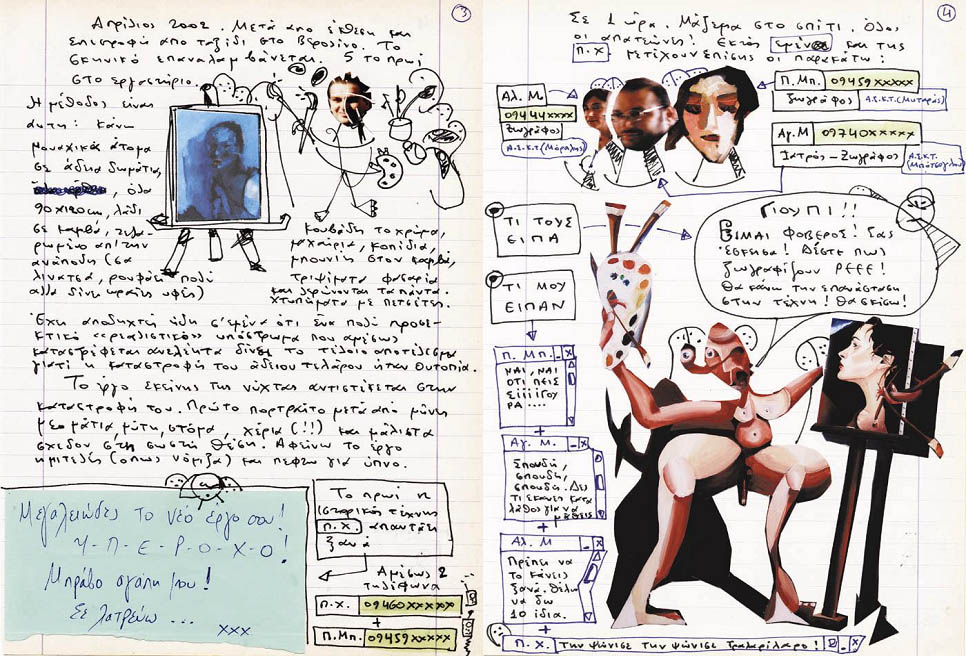 3
Απρίλιος 2002. Μετά από έκθεση και
επιστροφή από ταξίδι στο Βερολίνο. Το
σκηνικό επαναλαμβάνεται. 5 το πρωί
στο εργαστήριο...
Η μέθοδος είναι
αυτή: Κάνω
μοναχικά άτομα
σε άδεια δωμάτια,
όλα
90x120cm, λάδι
σε καμβά, τελα-
ρωμένο απ' την
ανάποδη (σα
λινάτσα, ρουφάει πολύ
αλλά δίνει ωραίες υφές)
Κουβάδη το χρώμα,
μαχαίρια, κοπίδια,
μπουνιές στον καμβά,
τρίψιμο φασαρία
και δέρνονται τα πάντα.
χτυπήματα με πετσέτες.
Έχει αποδειχτή ήδη σ' εμένα ότι ένα πολύ προσε-
κτικό «ρεαλιστικό» υπόστρωμα που αμέσως
καταστρέφεται ανελέητα δίνει το τέλειο αποτέλεσμα
γιατί η καταστροφή του άδειου τελάρου ήταν Ουτοπία.
Το έργο εκείνης της νύχτας αντιστέκεται στην
καταστροφή του. Πρώτο πορτραίτο μετά από μήνες
με μάτια μύτη, στόμα, χέρια (!!) και μάλιστα
σχεδόν στη σωστή θέση. Αφείνω το έργο
ημιτελές (όπως νόμιζα) και πέφτω για ύπνο.
Μεγαλειώδες το νέο έργο σου!
Υ-Π-Ε-Ρ-Ο-Χ-Ο!
Μπράβο αγάπη μου!
Σε λατρεύω ...
xxx
Το πρωί η
ιστορικός τέχνης
Π.Χ. απαντάει
ξανά
Αμέσως 2
τηλέφωνα
Π.Χ. 09460xxxxx
+
Π.Μπ. 09459xxxxx
4
Σε 1 ώρα. Μάζεμα στο σπίτι. Όλοι
οι απατεώνες! Εκτός εμένα και της
Π.Χ. μετέχουν επίσης οι παρακάτω:
Αλ. Μ.
09444xxxxx
Ζωγράφος
Α.Σ.Κ.Τ.
Π.Μπ. 09459xxxxx
Ζωγράφος Α.Σ.Κ.Τ. (Μυταράς)
Αγ.Μ 09740xxxxx
Ιατρός-Ζωγράφος Α.Σ.Κ.Τ.
ΤΙ ΤΟΥΣ
ΕΙΠΑ
ΓΙΟΥΠΙ!!
ΕΙΜΑΙ ΦΟΒΕΡΟΣ! Σας
έσκισα! Δέστε πως
ζωγραφίζουν ΡΕΕΕ!
Θα κάνω την επανάσταση
στην τέχνη! Θα σκίσω!
ΤΙ ΜΟΥ
ΕΙΠΑΝ
Π. Μπ. _ x
ΝΑΙ, ΝΑΙ
ΟΤΙ ΠΕΙΣ
ΣΙΙΙΙΓΟΥ
ΡΑ....
+
Αγ. Μ. _ x
Σπουδή,
σπουδή,
σπουδή. Δες
τι έκανες κατά
λάθος για να
μάθεις
+
Αλ. Μ _ x
Πρέπει να
το κάνεις
ξανά. Θέλω
να δω
10 ίδια.
+
Π. Χ. Την ψώνισε την ψώνισε τραλαρίλαρο! _ x